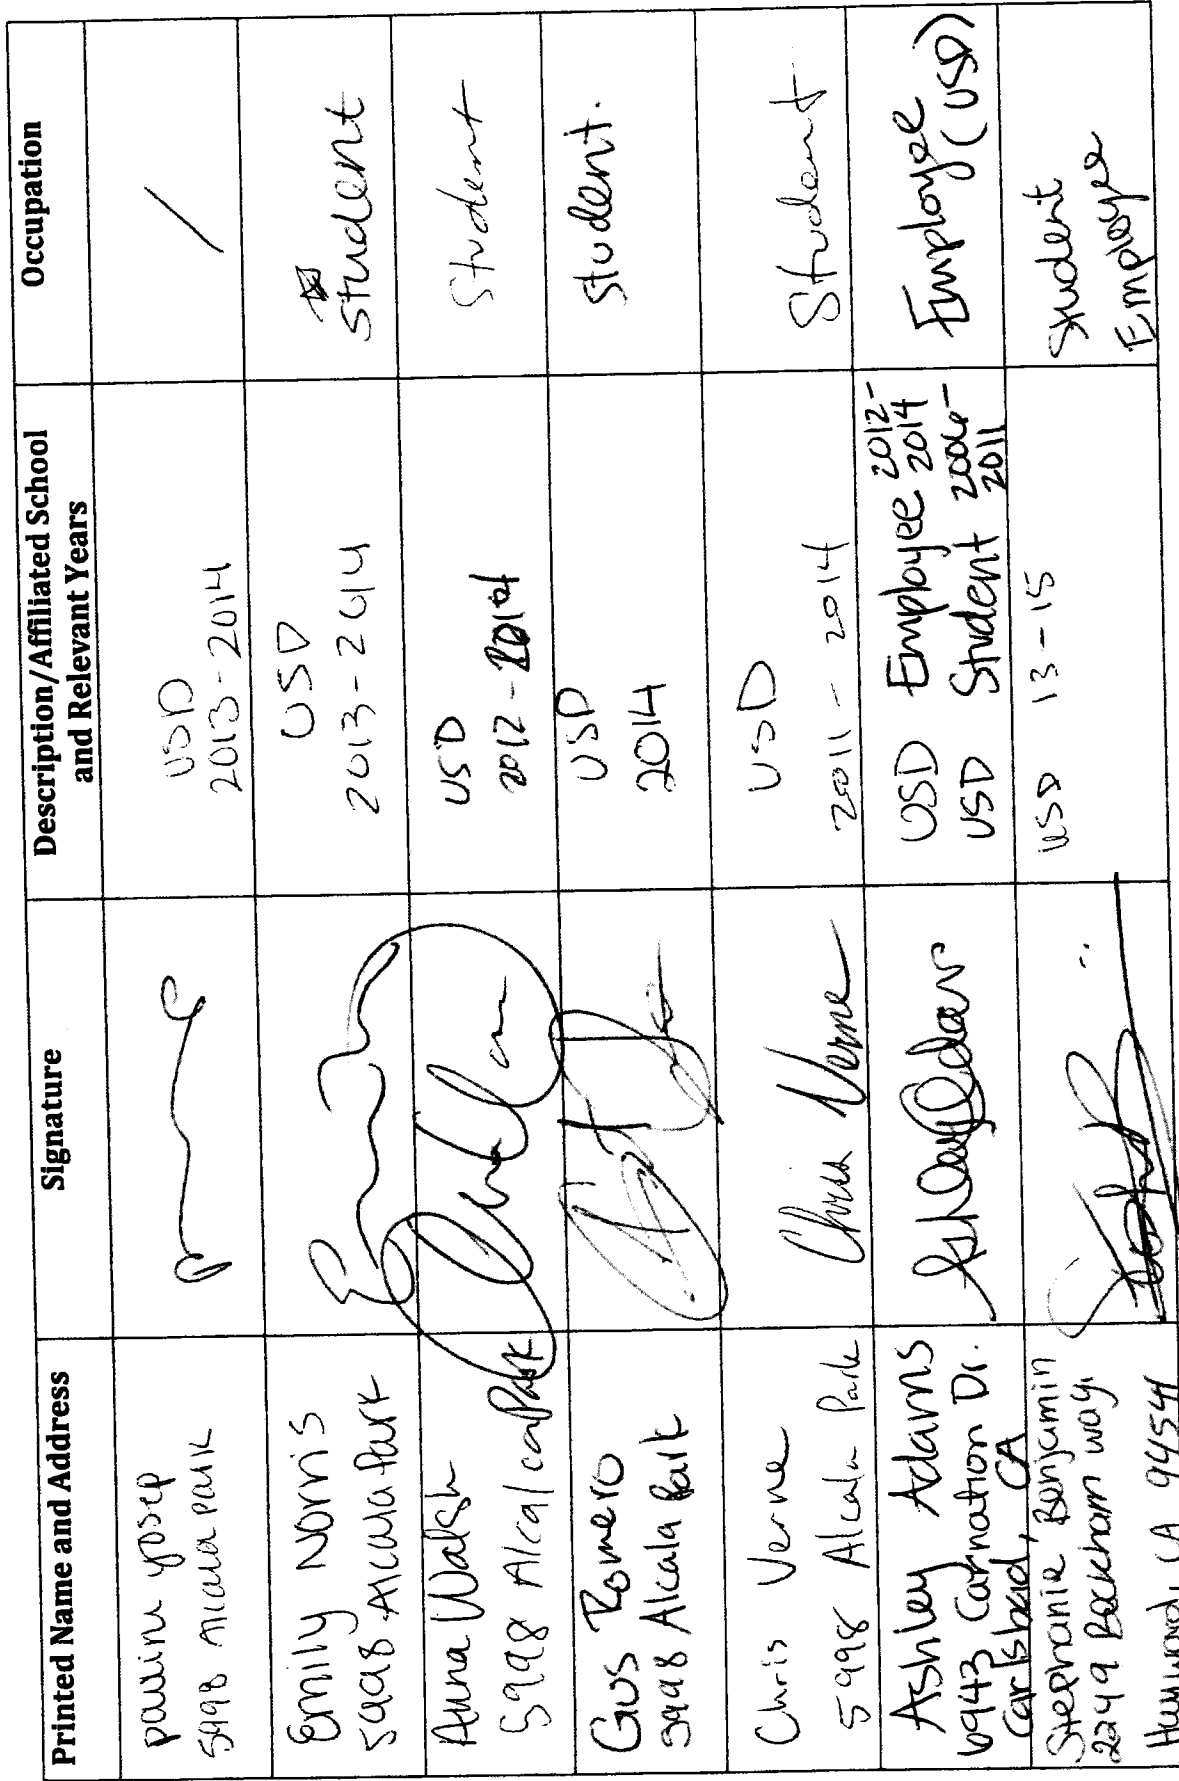 Printed Name and Address
Signature
Description/Affiliated School
and Relevant Years
Occupation
5998 Alcala Park
USD
2013-2014
/
Emily Norris
5998 Alcala Park
USD
2013-2014
Student
Anna Walsh
5998 Alcala Park
USD
2012-2014
Student
Gus Romero
5998 Alcala Park
USD
2014
Student.
Chris Verne
5998 Alcala Park
Chris Verne
USD
2011 - 2014
Student
Ashley Adams
6943 Carnation Dr.
Carlsbad, CA
USD Employee 2012-
2014
USD Student 2006-
2011
Employee
(USD)
Stephanie Benjamin
2249 Rackham way,
CA 94541
USD 13-15
Student
Employee